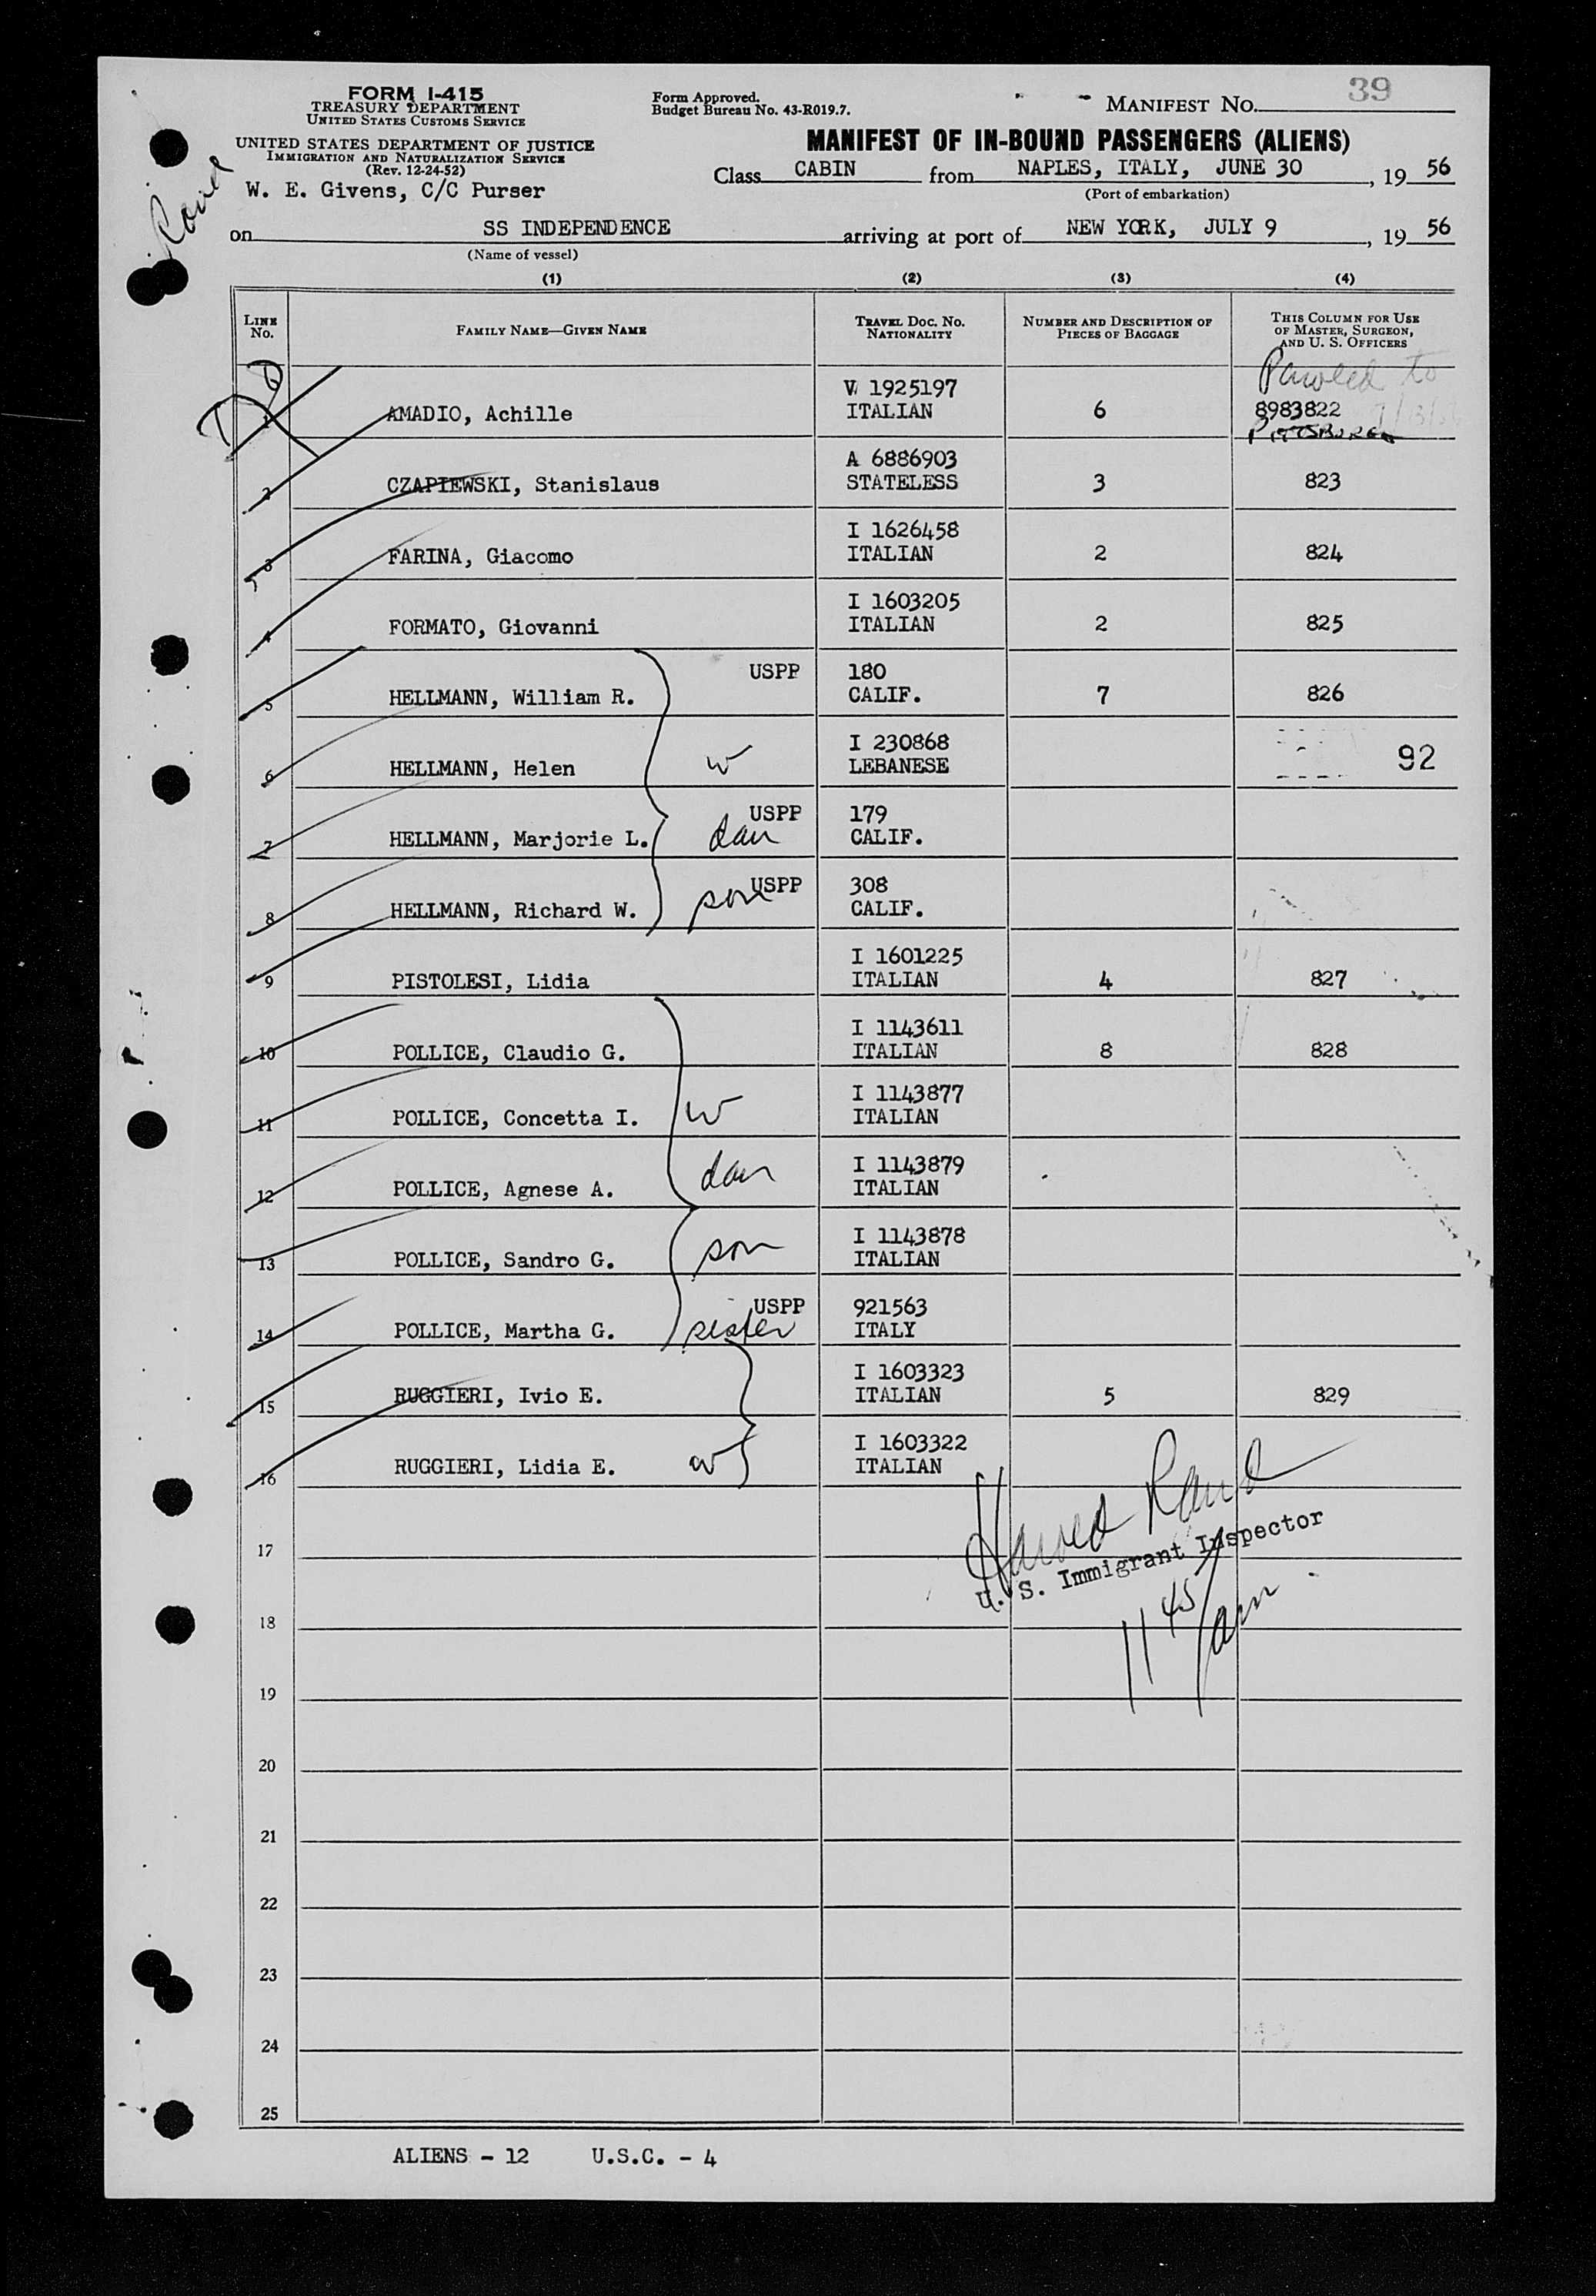 39
FORM I-415
TREASURY DEPARTMENT
UNITED STATES CUSTOMS SERVICE
Form Approved.
Budget Bureau No. 43-R019.7.
MANIFEST NO.
UNITED STATES DEPARTMENT OF JUSTICE
IMMIGRATION AND NATURALIZATION SERVICE
(Rev. 12-24-52)
MANIFEST OF IN-BOUND PASSENGERS (ALIENS)
W. E. Givens, C/C Purser
Class CABIN from NAPLES, ITALY, JUNE 30, 19 56
(Port of embarkation)
on SS INDEPENDENCE arriving at port of NEW YORK, JULY 9, 19 56
(Name of vessel)
(1) (2) (3) (4)
LINE No. FAMILY NAME—GIVEN NAME TRAVEL DOC. NO. NATIONALITY NUMBER AND DESCRIPTION OF PIECES OF BAGGAGE THIS COLUMN FOR USE OF MASTER, SURGEON, AND U. S. OFFICERS
Paroled to
V 1925197
1 AMADIO, Achille ITALIAN 6 8983822
PITTSBURGH
A 6886903
2 CZAPIEWSKI, Stanislaus STATELESS 3 823
I 1626458
3 FARINA, Giacomo ITALIAN 2 824
I 1603205
4 FORMATO, Giovanni ITALIAN 2 825
USPP 180
5 HELLMANN, William R. CALIF. 7 826
I 230868
6 HELLMANN, Helen w LEBANESE 92
USPP 179
7 HELLMANN, Marjorie L. dau CALIF.
USPP 308
8 HELLMANN, Richard W. son CALIF.
I 1601225
9 PISTOLESI, Lidia ITALIAN 4 827
I 1143611
10 POLLICE, Claudio G. ITALIAN 8 828
I 1143877
11 POLLICE, Concetta I. w ITALIAN
I 1143879
12 POLLICE, Agnese A. dau ITALIAN
I 1143878
13 POLLICE, Sandro G. son ITALIAN
USPP 921563
14 POLLICE, Martha G. sister ITALY
I 1603323
15 RUGGIERI, Ivio E. ITALIAN 5 829
I 1603322
16 RUGGIERI, Lidia E. w ITALIAN
Harold Rand
U. S. Immigrant Inspector
17
11 45 am
18
19
20
21
22
23
24
25
ALIENS - 12 U.S.C. - 4